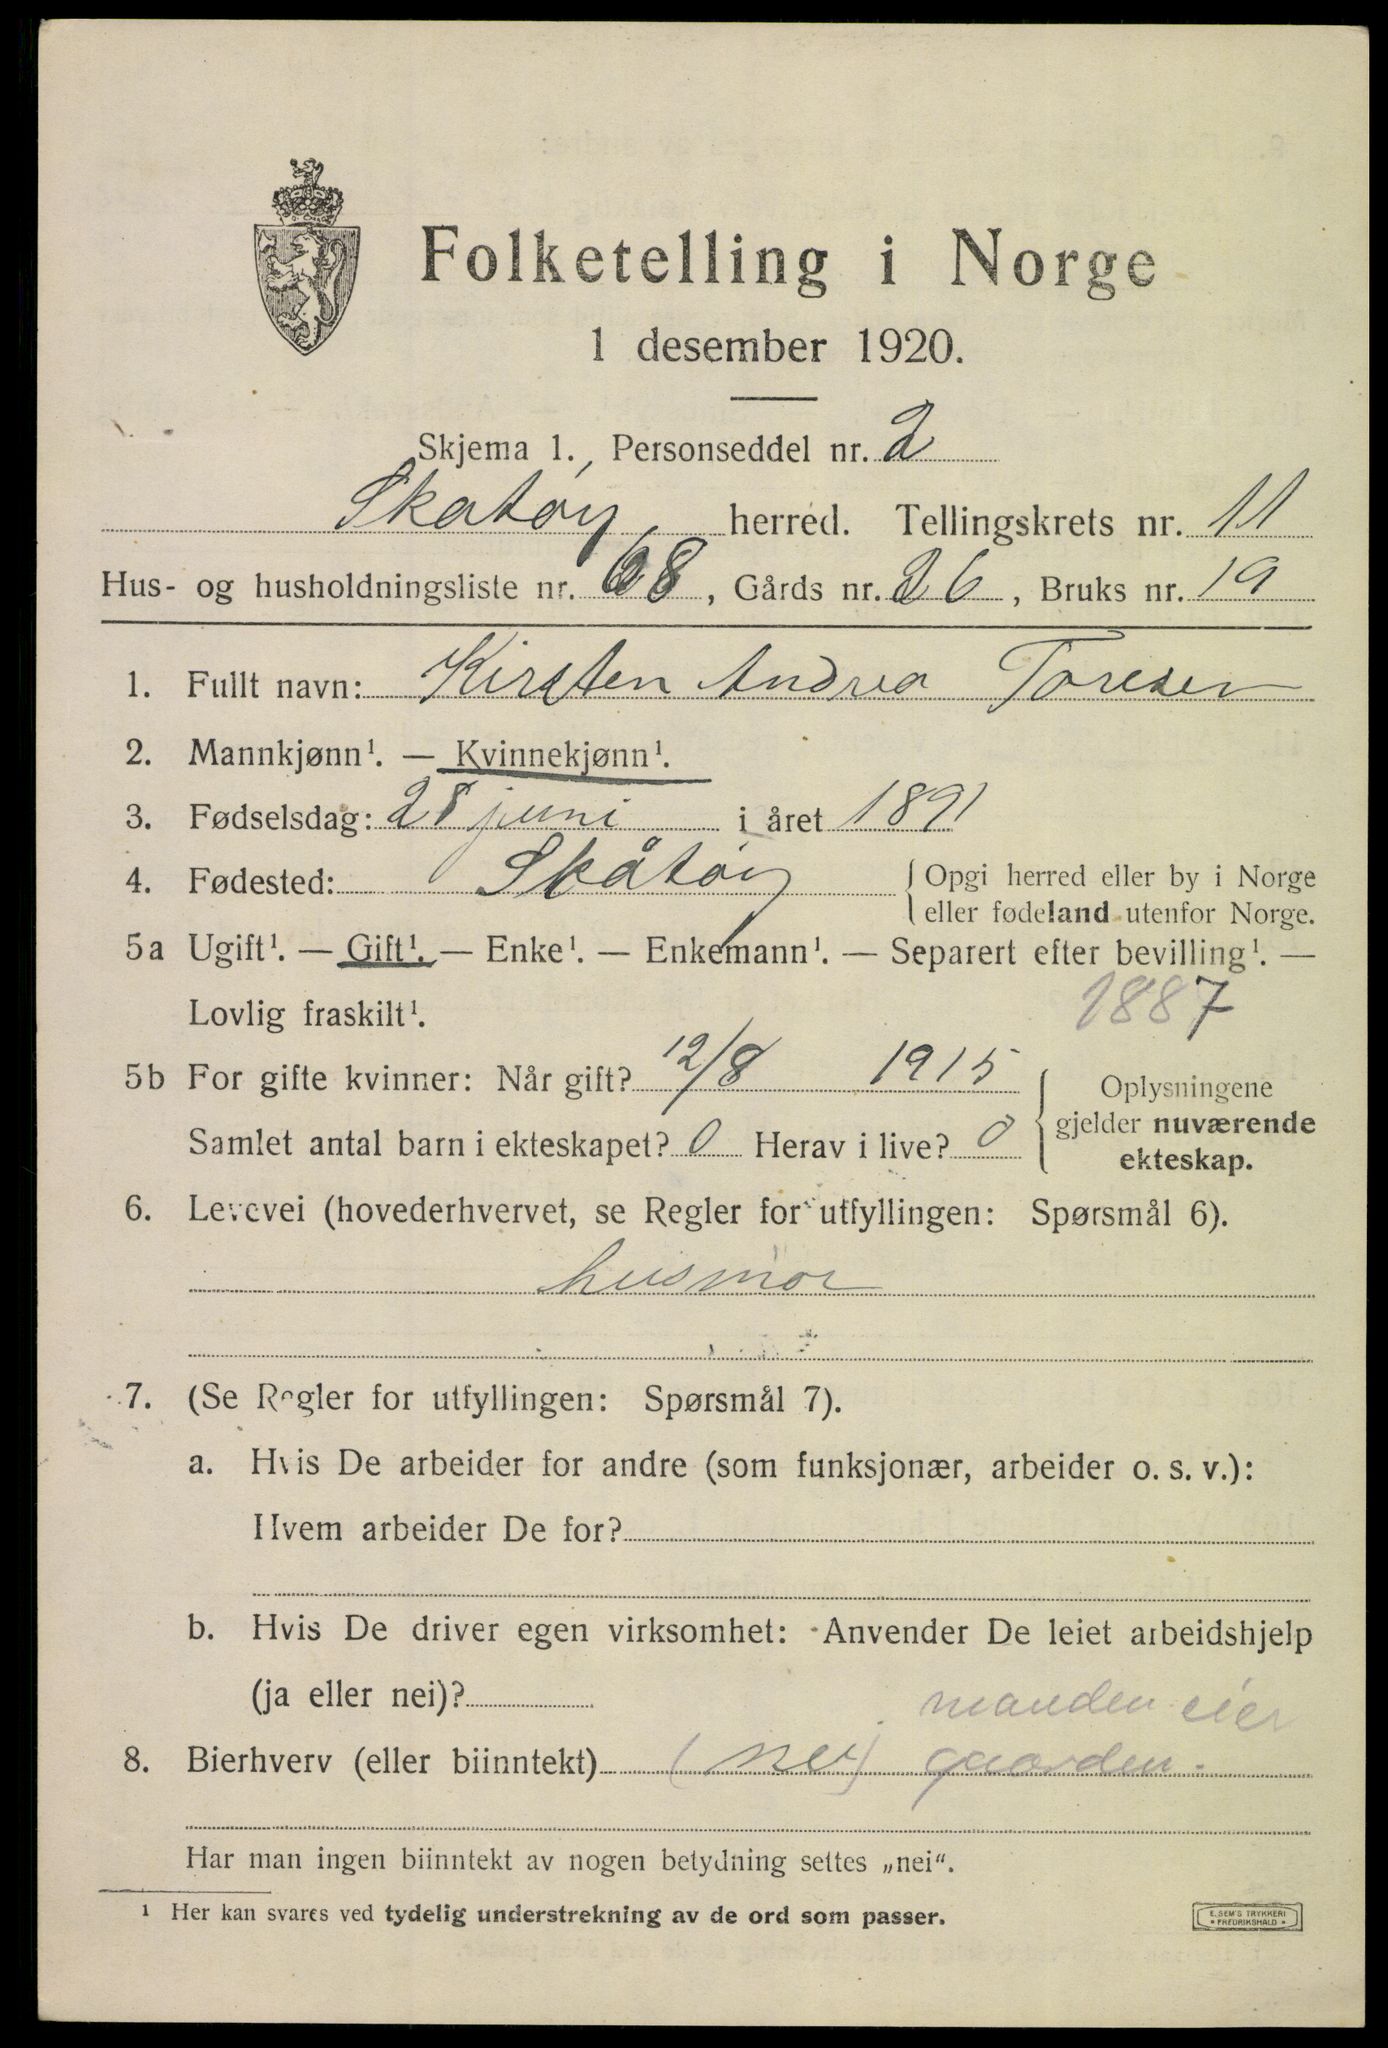 Folketelling i Norge
1 desember 1920.
Skjema 1. Personseddel nr. 2
Skatøy herred. Tellingskrets nr. 11
Hus- og husholdningsliste nr. 68, Gårds nr. 26, Bruks nr. 19
1. Fullt navn: Kirsten Andrea Toresen
2. Mannkjønn¹. — Kvinnekjønn¹.
3. Fødselsdag: 28 juni i året 1891
4. Fødested: Skåtøy { Opgi herred eller by i Norge
eller fødeland utenfor Norge.
5a Ugift¹. — Gift¹. — Enke¹. — Enkemann¹. — Separert efter bevilling¹. —
Lovlig fraskilt¹. 1887
5b For gifte kvinner: Når gift? 12/8 1915 { Oplysningene
gjelder nuværende
Samlet antal barn i ekteskapet? 0 Herav i live? 0
ekteskap.
6. Levevei (hovederhvervet, se Regler for utfyllingen: Spørsmål 6).
husmor
7. (Se Regler for utfyllingen: Spørsmål 7).
a. Hvis De arbeider for andre (som funksjonær, arbeider o. s. v.):
Hvem arbeider De for?
b. Hvis De driver egen virksomhet: Anvender De leiet arbeidshjelp
(ja eller nei)? manden eier
8. Bierhverv (eller biinntekt) (nei) gaarden.
Har man ingen biinntekt av nogen betydning settes „nei“.
¹ Her kan svares ved tydelig understrekning av de ord som passer.
E. SEM'S TRYKKERI
FREDRIKSHALD